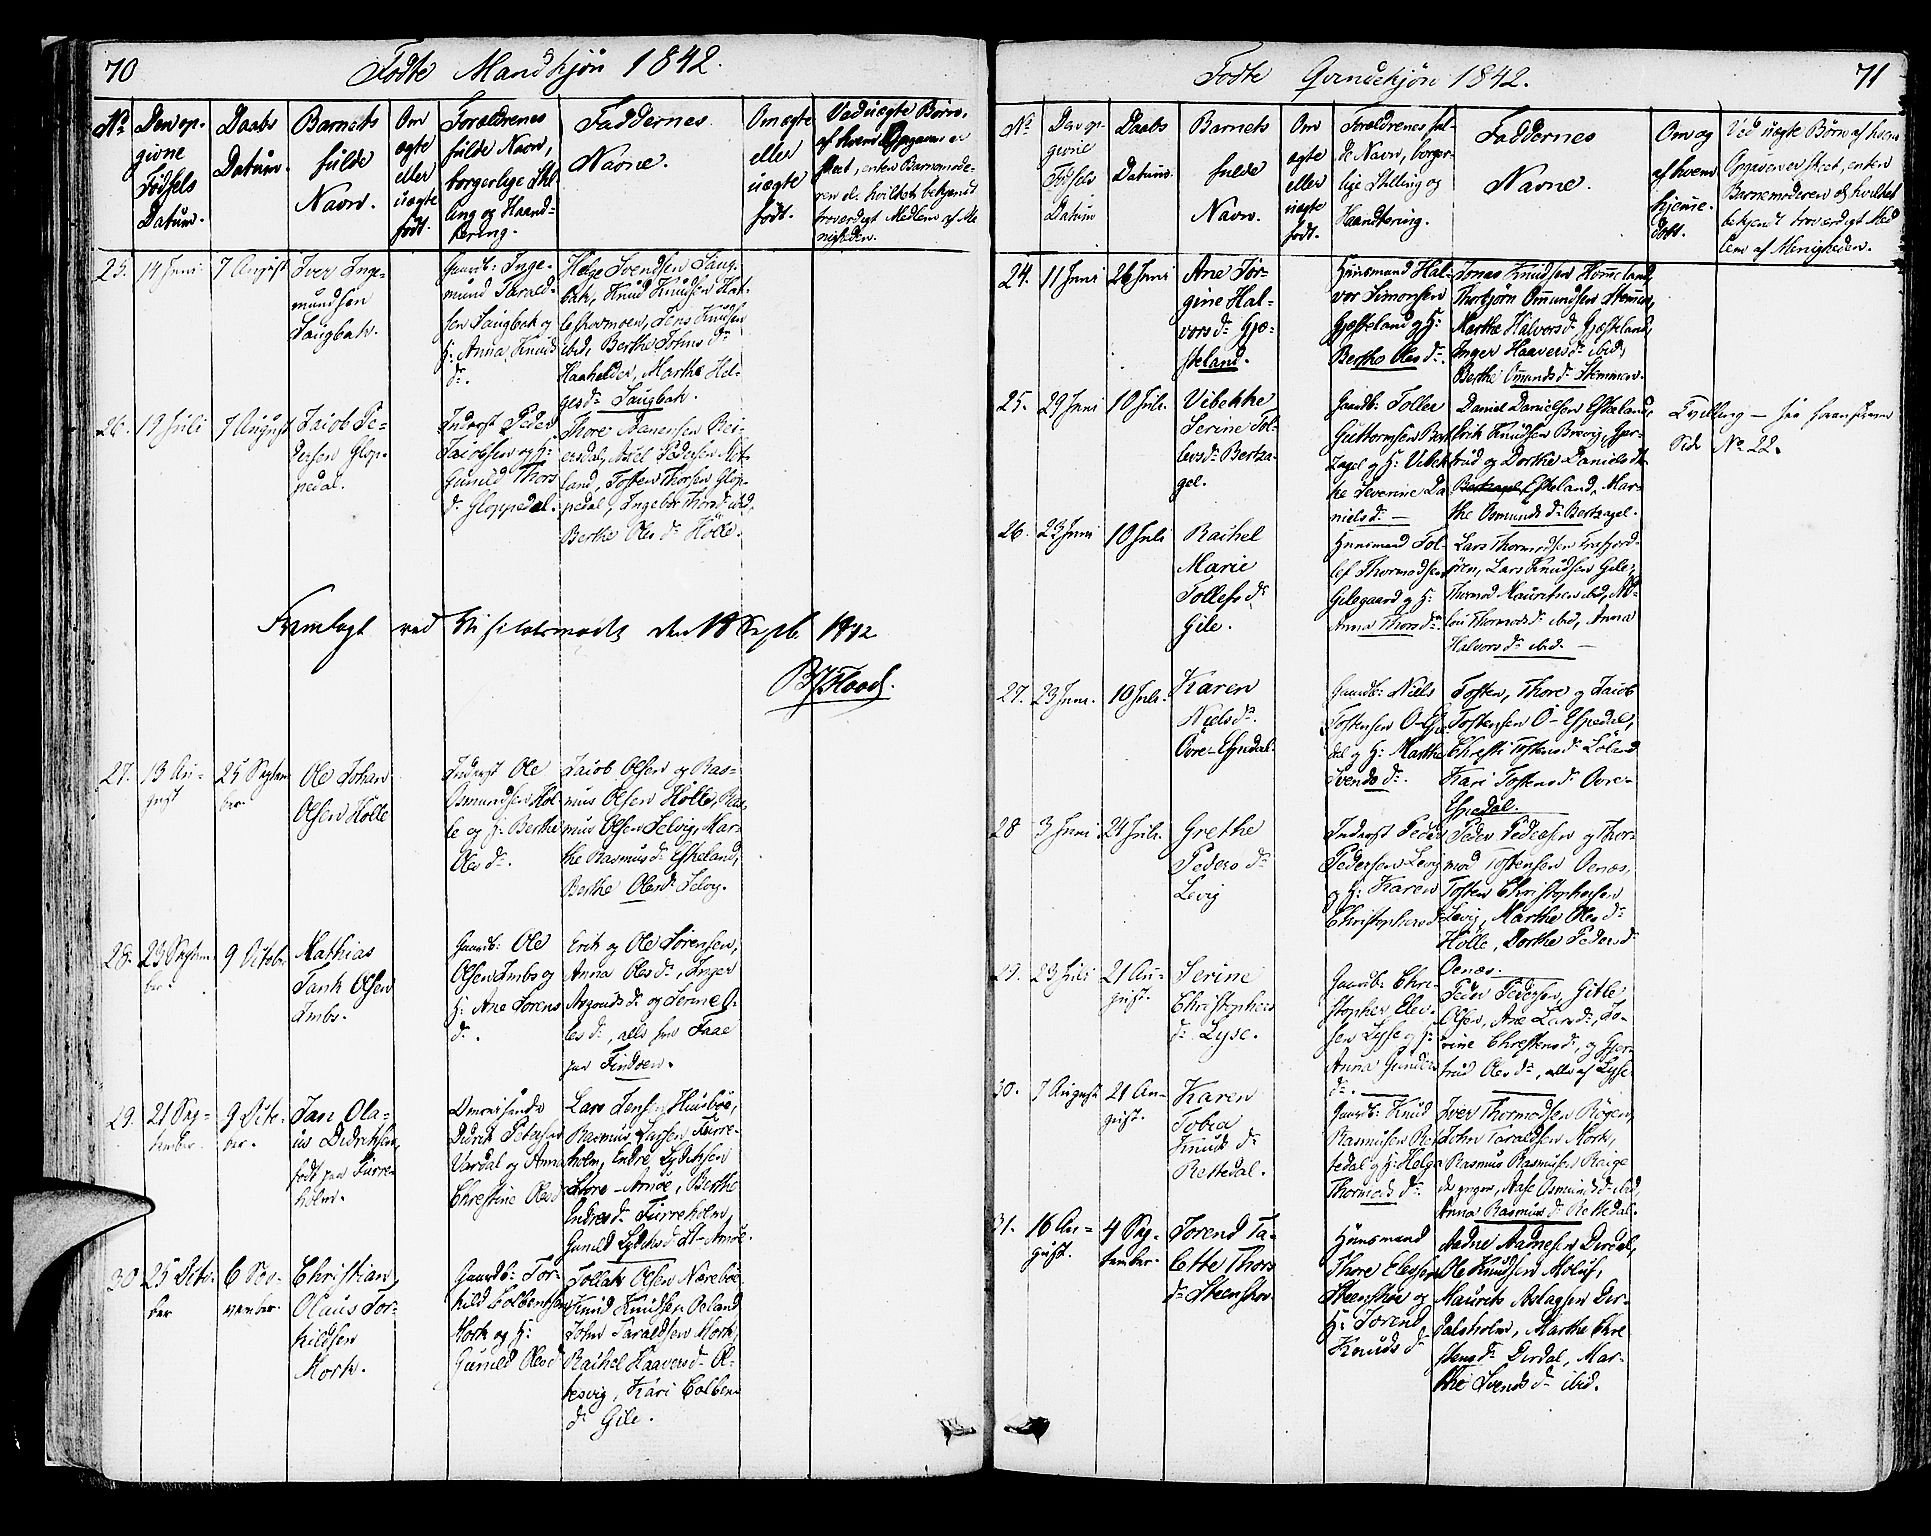 70
Fødte Mandkjøn 1842.
No
Den op-
givne
Fødsels
Datum.
Daabs
Datum.
Barnets
fulde
Navn.
Om
ægte
eller
uægte
født.
Forældrenes
fulde Navn,
borgerlige Stil-
ling og Haand-
tering.
Faddernes
Navne.
Om ægte
eller
uægte
født.
Ved uægte Børn,
af hvem Opgaven er
skeet, enten Barnemode-
ren el. hvilket bekjendt
troværdigt Medlem af Me-
nigheden.
25.
14 Juni
7 August
Iver Inge-
mundsen
Laugbak.
Gaardb: Inge-
mund Tarald-
sen Laugbak og
H: Anna Knuds
dr.
Helge Svendsen Laug-
bak, Knud Knudsen Hat-
leskarmoen, Jens Knudsen
ibid, Berthe Johns dr
Haahelder, Marthe Hel-
gesdr Laugbak.
26.
19 Juli
7 August
Jacob Pe-
dersen Glop-
pedal.
Inderst Peder
Jacobsen og H:
Gunild Thors
dr Gloppedal.
Thore Aanensen Rei-
ersdal, Axel Pedersen Møt-
land, Tosten Thorsen Glop-
pedal, Ingebor Thorsdr ibid,
Berthe Olesdr Hølle.
Fremlagt ved Visitatsmødet den 18 Septb 1842
27.
13 Au-
gust
25 Septem
ber.
Ole Johan
Olsen Hølle
Inderst Ole
Osmundsen Høl-
le og H: Berthe
Olesdr.
Jacob Olsen og Ras-
mus Olsen Hølle, Ras-
mus Olsen Selvig, Mar-
the Rasmusdr Eskeland,
Berthe Olesdr Selvig.
28.
23 Septem
ber.
9 Octobr
Mathias
Tank Olsen
Imbs.
Gaardb: Ole
Olsen Imbs og
H: Ane Sørens
dr.
Erik og Ole Sørensen,
Anna Olesdr, Inger
dr og Serine O-
lesdr, alle fra
paa Findøen.
29.
21 Sep-
tember
9 Octo-
ber.
Jan Ola-
us Didriksen,
født paa Furre-
holm.
Omreisende
Didrik Petersen
Vardal og Anna
Christine Olesd
Lars Jens: Huusbøe,
Rasmus Larsen Furre-
holm, Endre Lydeksen
Store-Amøe, Berthe
Endresdr Furreholm,
Gunild Lydeksdr St-Amøe.
30
25 Octo-
ber
6 Nov-
vember.
Christian
Olaus Tor-
kildsen
Mork.
Gaardb: Tor-
kild Colbentsen
Mork og H:
Gunild Olesd
Tollak Olsen Nærebøe
Knud Knudsen Osland
John Taraldsen Mork,
Rachel Haaversdr Ol-
tesvig, Kari Colben
dr Gile.
71
Fødte Qvindekjøn 1842.
No
Den op-
givne
Fødsels
Datum
Daabs
Datum.
Barnets
fulde
Navn.
Om
ægte
eller
uægte
født.
Forældrenes ful-
de Navn, borger-
lige Stilling og
Haandtering.
Faddernes
Navne.
Om og
af hvem
hjemme-
døbt.
Ved uægte Børn af hvem
Opgaven er skeet, enten
Barnemoderen el. hvilket
bekjendt troværdigt Med
lem af Menigheden.
24.
11 Juni
26 Juni
Ane Tor-
gine Hal-
vorsdr Gjæ-
steland.
Huusmand Hal-
vor Simonsen
Gjæsteland og H:
Berthe Olesdr.
Jonas Knudsen Hommeland,
Thorbjørn Omundsen Stemmen,
Marthe Halvorsdr Gjæsteland,
Inger Haaversdr ibid,
Berthe Omundsdr Stemmen.
25.
29 Juni
10 Juli
Vibekke
Serine Tol-
levsdr Bertza-
gel.
Gaardb: Toller
Guttormsen Bert
zagel og H: Vibek
ke Severine Da
nielsdr
Daniel Danielsen Eskeland,
Erik Knudsen Brevig, Gjer-
trud og Dorthe Danielsdr
Eskeland, Mar-
the Osmundsdr Bertzagel.
Tvilling – see Mandkjønnets
Side No 22.
26.
23 Juni
10 Juli
Rachel
Marie
Tollefsdr
Gile.
Huusmand Tol-
lef Thormodsen
Gilegaard og H:
Anna Thorsdr
Lars Thormodsen Frafjord-
øren, Lars Knudsen Gile,
Thormod Mauritsen ibid, Ma-
lene Thormodsdr ibid, Anna
Halvorsdr ibid.
27.
23 Juni.
10 Juli.
Karen
Nielsdr
Øvre-Espedal
Gaardb: Niels
Tostensen Ø-Espe
dal og H: Marthe
Svendsdr.
Tosten, Thore og Jacob
Tostensen Ø-Espedal,
Christi Tostensdr Løland
Kari Tostensdr Øvre-
Espedal.
28
3 Juni
24 Juli
Grethe
Pedersdr
Levig
Inderst Peder
Pedersen Levig
og H: Karen
Christophersdr
Peder Pedersen og Thor-
mod Tostensen Oenæs,
Tosten Christophersen
Levig, Marthe Olesdr
Hølle, Dorthe Pedersdr
Oenæs.
29.
23 Juli
21 Au-
gust.
Serine
Christophers
dr Lyse.
Gaardb: Chri-
stopher Elev-
sen Lysse og H:
Anna Gunders
dr.
Peder Pedersen, Gitle
Olsen, Ane Larsdr, To-
rine Christensdr, og Gjer-
trud Olesdr, alle af Lyse
30.
7 August
21 Au-
gust.
Karen
Tobia
Knudsdr
Rettedal.
Gaardb: Knud
Rasmusen Ret
tedal og H: Helga
Thormodsdr.
Iver Thormodsen Røgen,
John Taraldsen Mork,
Rasmus Rasmusen Raige
, Aase Osmundsdr ibid,
Anna Rasmusdr Rettedal.
31.
16 Au-
gust.
4 Sep-
tember.
Torend Ta-
lette Thors
dr Steenskov
Huusmand
Thore Elefsen
Steenskov og
H: Torend
Knudsdr
Aadne Aadnesen Dirdal,
Ole Knudsen Moluf,
Maurits Aslagsen Dir-
dalsholm, Marthe Chri-
stensdr Dirdal, Mar-
the Svendsdr ibid.